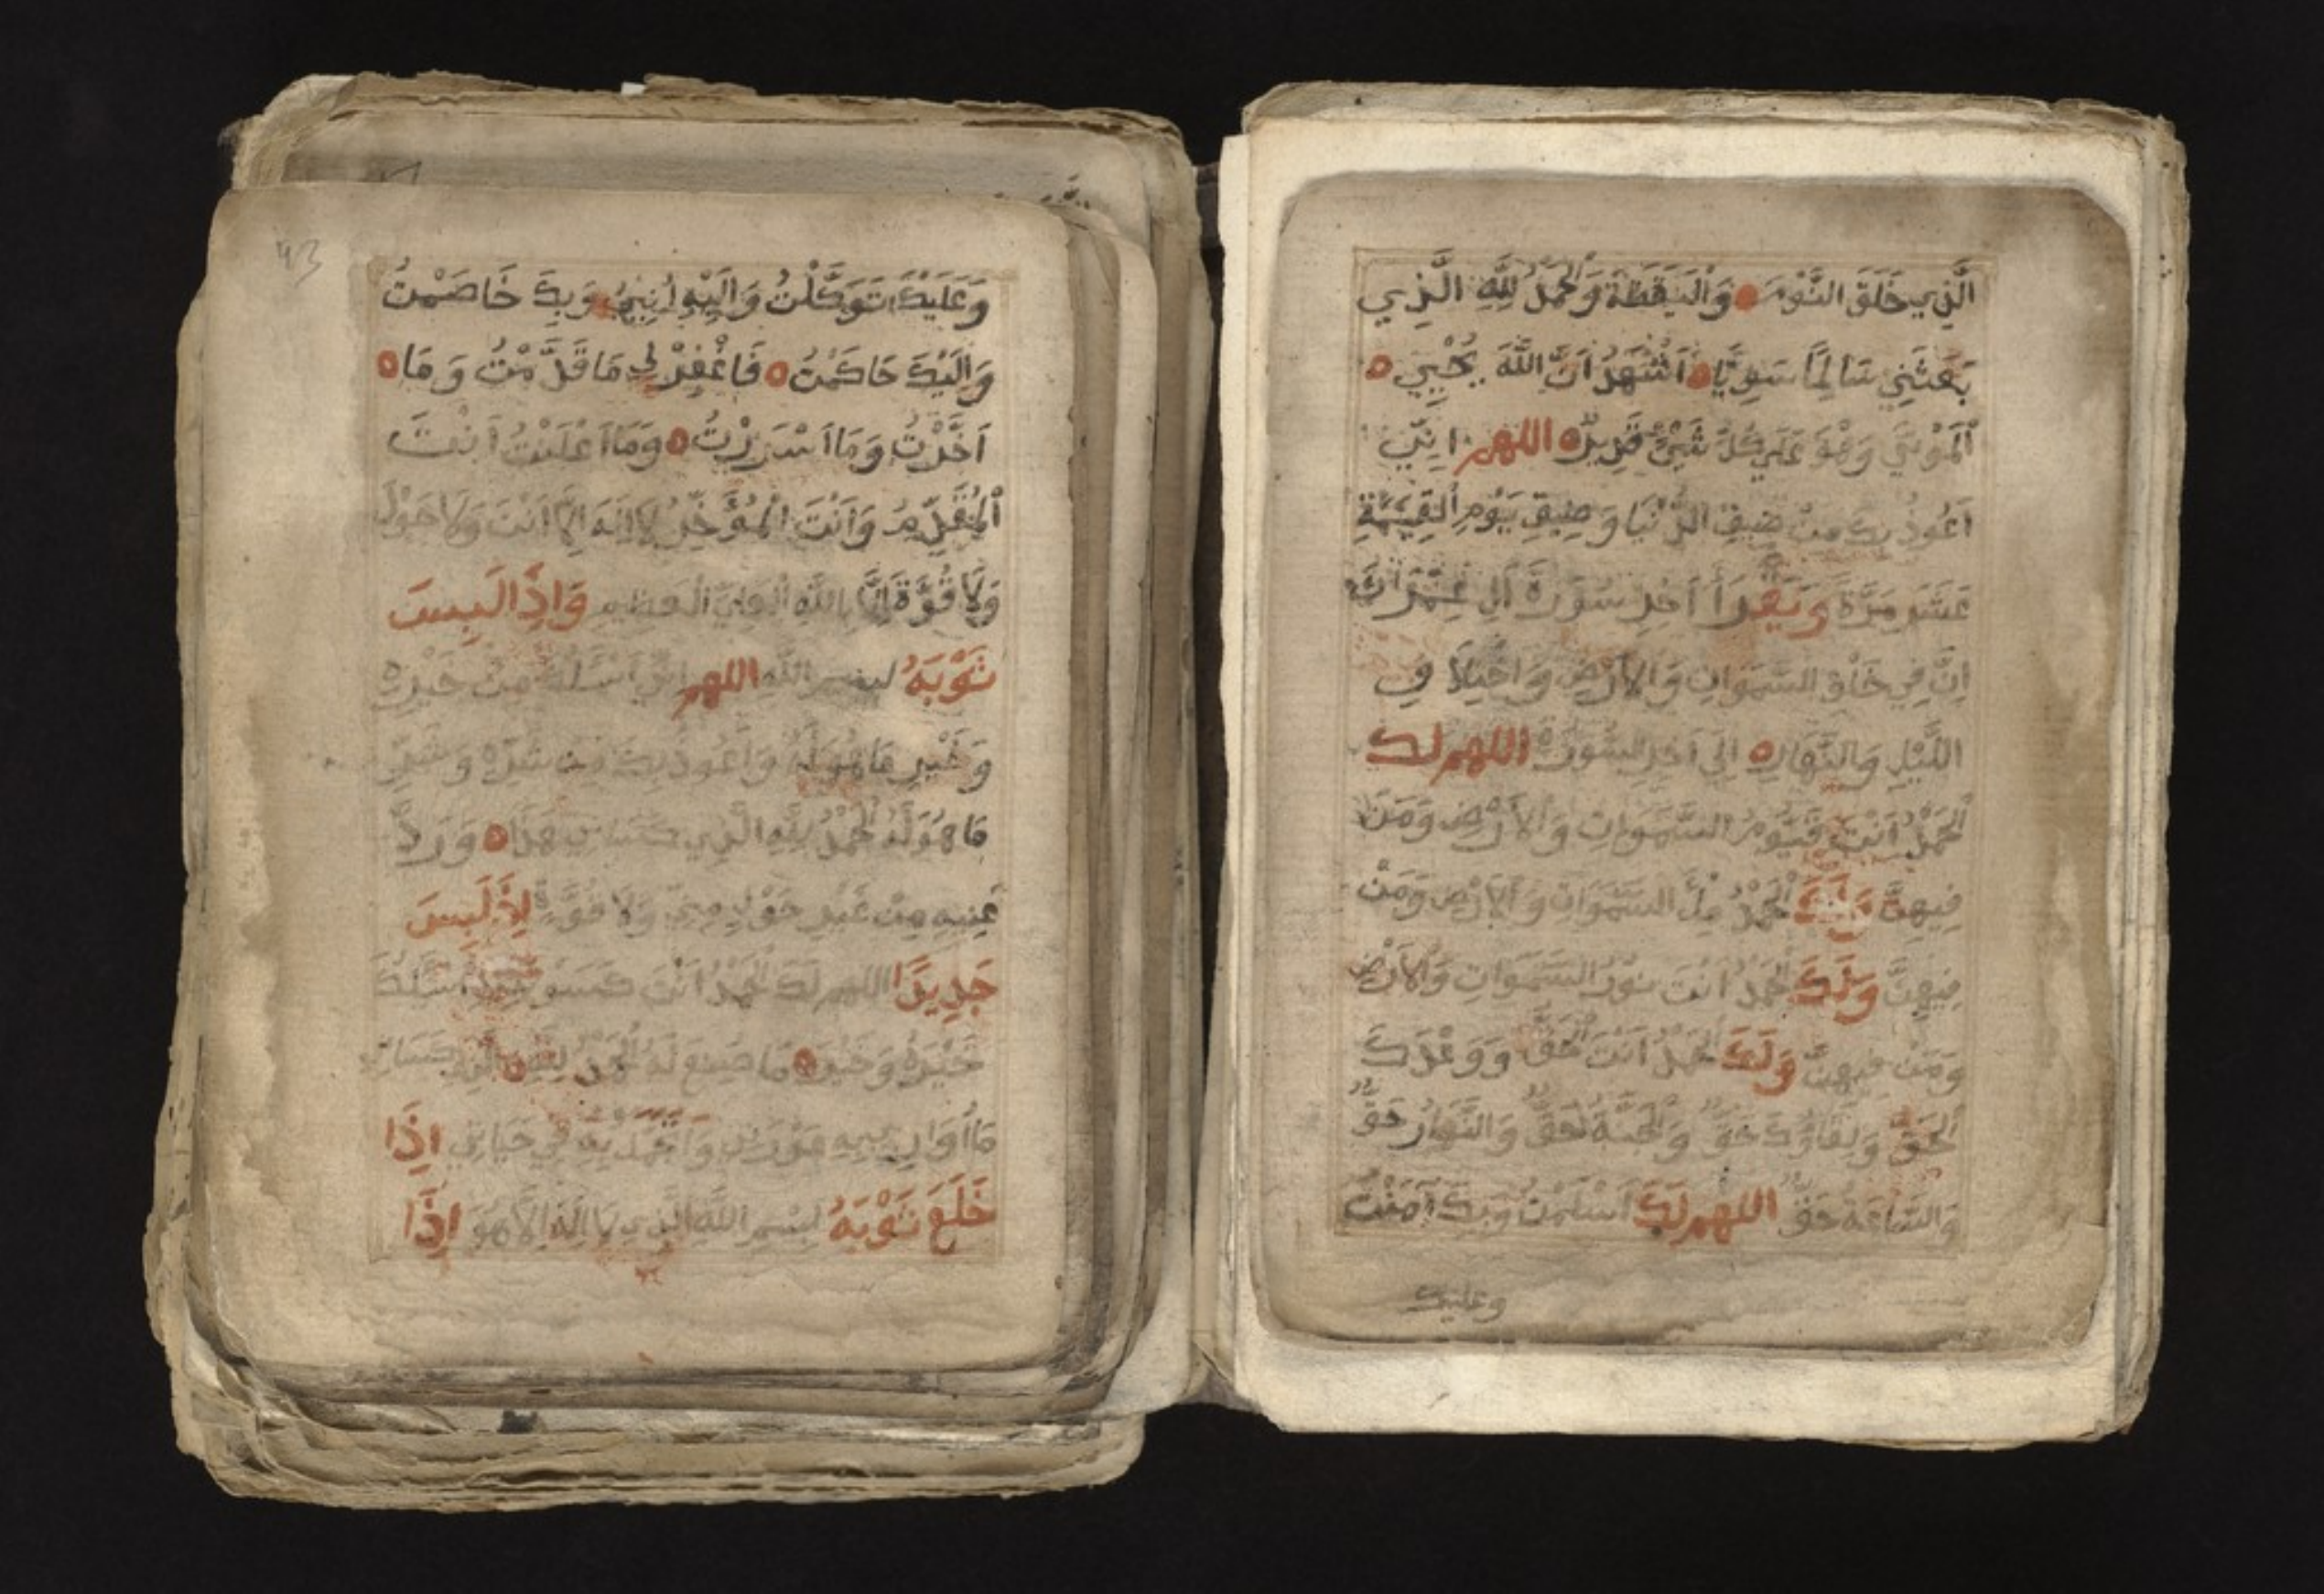 الَّذِي خَلَقَ النَّوْمَ وَالْيَقَظَةَ وَالْحَمْدُ لِلَّهِ الَّذِي
بَعَثَنِي سَالِمًا سَوِيًّا اَشْهَدُ اَنَّ اللَّهَ يُحْيِي
الْمَوْتَي وَهُوَ عَلَي كُلِّ شَيْئٍ قَدِيرٌ اللهم اِنِّي
اَعُوذُ بِكَ مِنْ ضِيقِ الدُّنْيَا وَضِيقِ يَوْمِ الْقِيَمَةِ
عَشَرَ مَرَّةً وَيَقْرَأُ اَخِرَ سُورَةَ اَلِ عِمْرَانَ
اِنَّ فِي خَلْقِ السَّمَوَاتِ وَالْاَرْضِ وَاخْتِلَافِ
اللَّيْلِ وَالنَّهَارِ اِلَي اَخِرِ السُّورَةِ اللهم لك
الْحَمْدُ اَنْتَ قَيُّومُ السَّمَوَاتِ وَالْاَرْضِ وَمَنْ
فِيهِنَّ وَلَكَ الْحَمْدُ مِلْأَ السَّمَوَاتِ وَالْاَرْضِ وَمَنْ
فِيهِنَّ وَلَكَ الْحَمْدُ اَنْتَ نُورُ السَّمَوَاتِ وَالْاَرْضِ
وَمَنْ فِيهِنَّ وَلَكَ الْحَمْدُ اَنْتَ الْحَقُّ وَوَعْدَكَ
الْحَقُّ وَلِقَاؤُكَ حَقٌّ وَالْجَنَّةُ حَقٌّ وَالنَّهَارُ حَقٌّ
وَالسَّاعَةُ حَقٌّ اللهم لَكَ اَسْلَمْتُ وَبِكَ اَمَنْتُ
وعليك
43
وَعَلَيْكَ تَوَكَّلْتُ وَاِلَيْهِ اُنِيبُ وَبِكَ خَاصَمْتُ
وَاِلَيْكَ حَاكَمْتُ فَاغْفِرْ لِي مَا قَدَّمْتُ وَمَا
اَخَّرْتُ وَمَا اَسْرَرْتُ وَمَا اَعْلَنْتُ اَنْتَ
الْمُقَدِّمُ وَاَنْتَ الْمُؤَخِّرُ لَا اِلَهَ اِلَّا اَنْتَ وَلَا حَوْلَ
وَلَا قُوَّةَ اِلَّا بِاللَّهِ الْعَلِيِّ الْعَظِيمِ وَاِذَا لَبِسَ
ثَوْبَهُ بِسْمِ اللَّهِ اللهم اِنِّي اَسْئَلُكَ مِنْ خَيْرِهِ
وَخَيْرِ مَا هُوَ لَهُ وَاَعُوذُ بِكَ مِنْ شَرِّهِ وَشَرِّ
مَا هُوَ لَهُ الْحَمْدُ لِلَّهِ الَّذِي كَسَانِي هَذَا وَرَزَ
قَنِيهِ مِنْ غَيْرِ حَوْلٍ مِنِّي وَلَا قُوَّةٍ لِبَسَ
جَدِيدًا اللهم لَكَ الْحَمْدُ اَنْتَ اَسْئَلُكَ
خَيْرَهُ وَخَيْرَ مَا صُنِعَ لَهُ الْحَمْدُ لِلَّهِ الَّذِي كَسَانِي
مَا اُوَارِي بِهِ عَوْرَتِي وَاَتَجَمَّلُ بِهِ فِي حَيَاتِي اِذَا
خَلَعَ ثَوْبَهُ بِسْمِ اللَّهِ الَّذِي لَا اِلَهَ اِلَّا هُوَ اِذَا